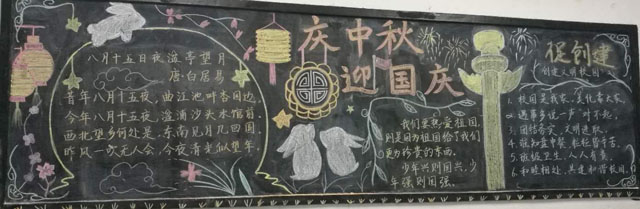 八月十五日夜湓亭望月
唐·白居易
昔年八月十五夜，曲江池畔杏园边。
今年八月十五夜，湓浦沙头水馆前。
西北望乡何处是，东南见月几回圆。
昨风一吹无人会，今夜清光似望年。
庆中秋
迎国庆
我们要热爱祖国，
别是因为祖国给了我们
更为珍贵的东西。
少年兴则国兴，少
年强则国强。
促创建
创建文明校园
1. 校园是我家，美化靠大家。
2. 遇事多说一声"对不起"。
3. 团结务实，文明进取。
4. 谁知盘中餐，粒粒皆辛苦。
5. 班级卫生，人人有责。
6. 和睦相处，共建和谐校园。